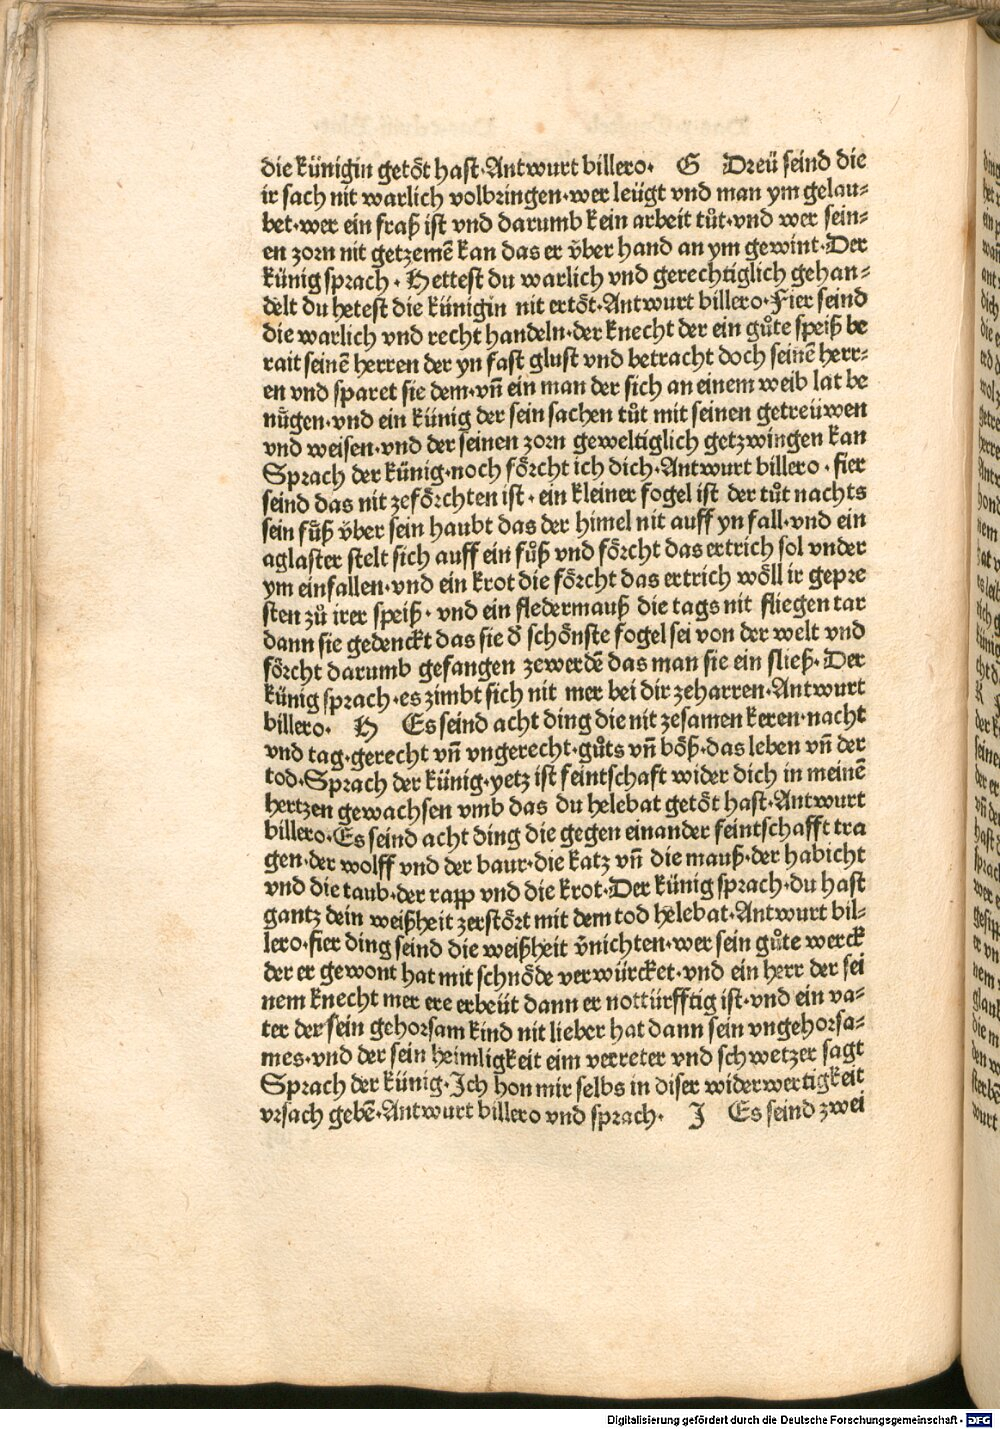 die künigin getöt hast·Antwurt billero· G Dreü seind die
ir sach nit warlich volbringen·wer leügt vnd man ym gelau⸗
bet·wer ein fraß ist vnd darumb kein arbeit tůt·vnd wer sein⸗
en zorn nit getzemē kan das er v̈ber hand an ym gewint·Der
künig sprach · Hettest du warlich vnd gerechtiglich gehan⸗
delt du hetest die künigin nit ertöt·Antwurt billero·Fier seind
die warlich vnd recht handeln·der knecht der ein gůte speiß be
rait seinē herren der yn fast glust vnd betracht doch seinē herr⸗
en vnd sparet sie dem·vn̄ ein man der sich an einem weib lat be
nügen·vnd ein künig der sein sachen tůt mit seinen getreüwen
vnd weisen·vnd der seinen zorn geweltiglich getzwingen kan
Sprach der künig·noch förcht ich dich·Antwurt billero · fier
seind das nit zeförchten ist · ein kleiner fogel ist der tůt nachts
sein füß v̈ber sein haubt das der himel nit auff yn fall·vnd ein
aglaster stelt sich auff ein fůß vnd förcht das ertrich sol vnder
ym einfallen·vnd ein krot die förcht das ertrich wöll ir gepre
sten zů irer speiß · vnd ein fledermauß die tags nit fliegen tar
dann sie gedenckt das sie d̄ schönste fogel sei von der welt vnd
förcht darumb gefangen zewerdē das man sie ein sließ· Der
künig sprach·es zimbt sich nit mer bei dir zeharren·Antwurt
billero· H Es seind acht ding die nit zesamen keren·nacht
vnd tag·gerecht vn̄ vngerecht·gůts vn̄ böß·das leben vn̄ der
tod·Sprach der künig·yetz ist feintschaft wider dich in meinē
hertzen gewachsen vmb das du helebat getöt hast·Antwurt
billero·Es seind acht ding die gegen einander feintschafft tra
gen·der wolff vnd der baur·die katz vn̄ die mauß·der habicht
vnd die taub·der rapp vnd die krot·Der künig sprach·du hast
gantz dein weißheit zerstört mit dem tod helebat·Antwurt bil⸗
lero·fier ding seind die weißheit v̄nichten·wer sein gůte werck
der er gewont hat mit schnöde verwürcket·vnd ein herr der sei
nem knecht mer ere erbeüt dann er nottürfftig ist·vnd ein va⸗
ter der sein gehorsam kind nit lieber hat dann sein vngehorsa⸗
mes·vnd der sein heimligkeit eim verreter vnd schwetzer sagt
Sprach der künig·Ich hon mir selbs in diser widerwertigkeit
vrsach gebē·Antwurt billero vnd sprach· J Es seind zwei
Digitalisierung gefördert durch die Deutsche Forschungsgemeinschaft - DFG